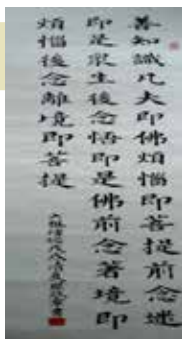 善知識凡夫即佛煩惱即菩提前念迷
即是衆生後念悟即是佛前念著境即
煩惱後念離境即菩提